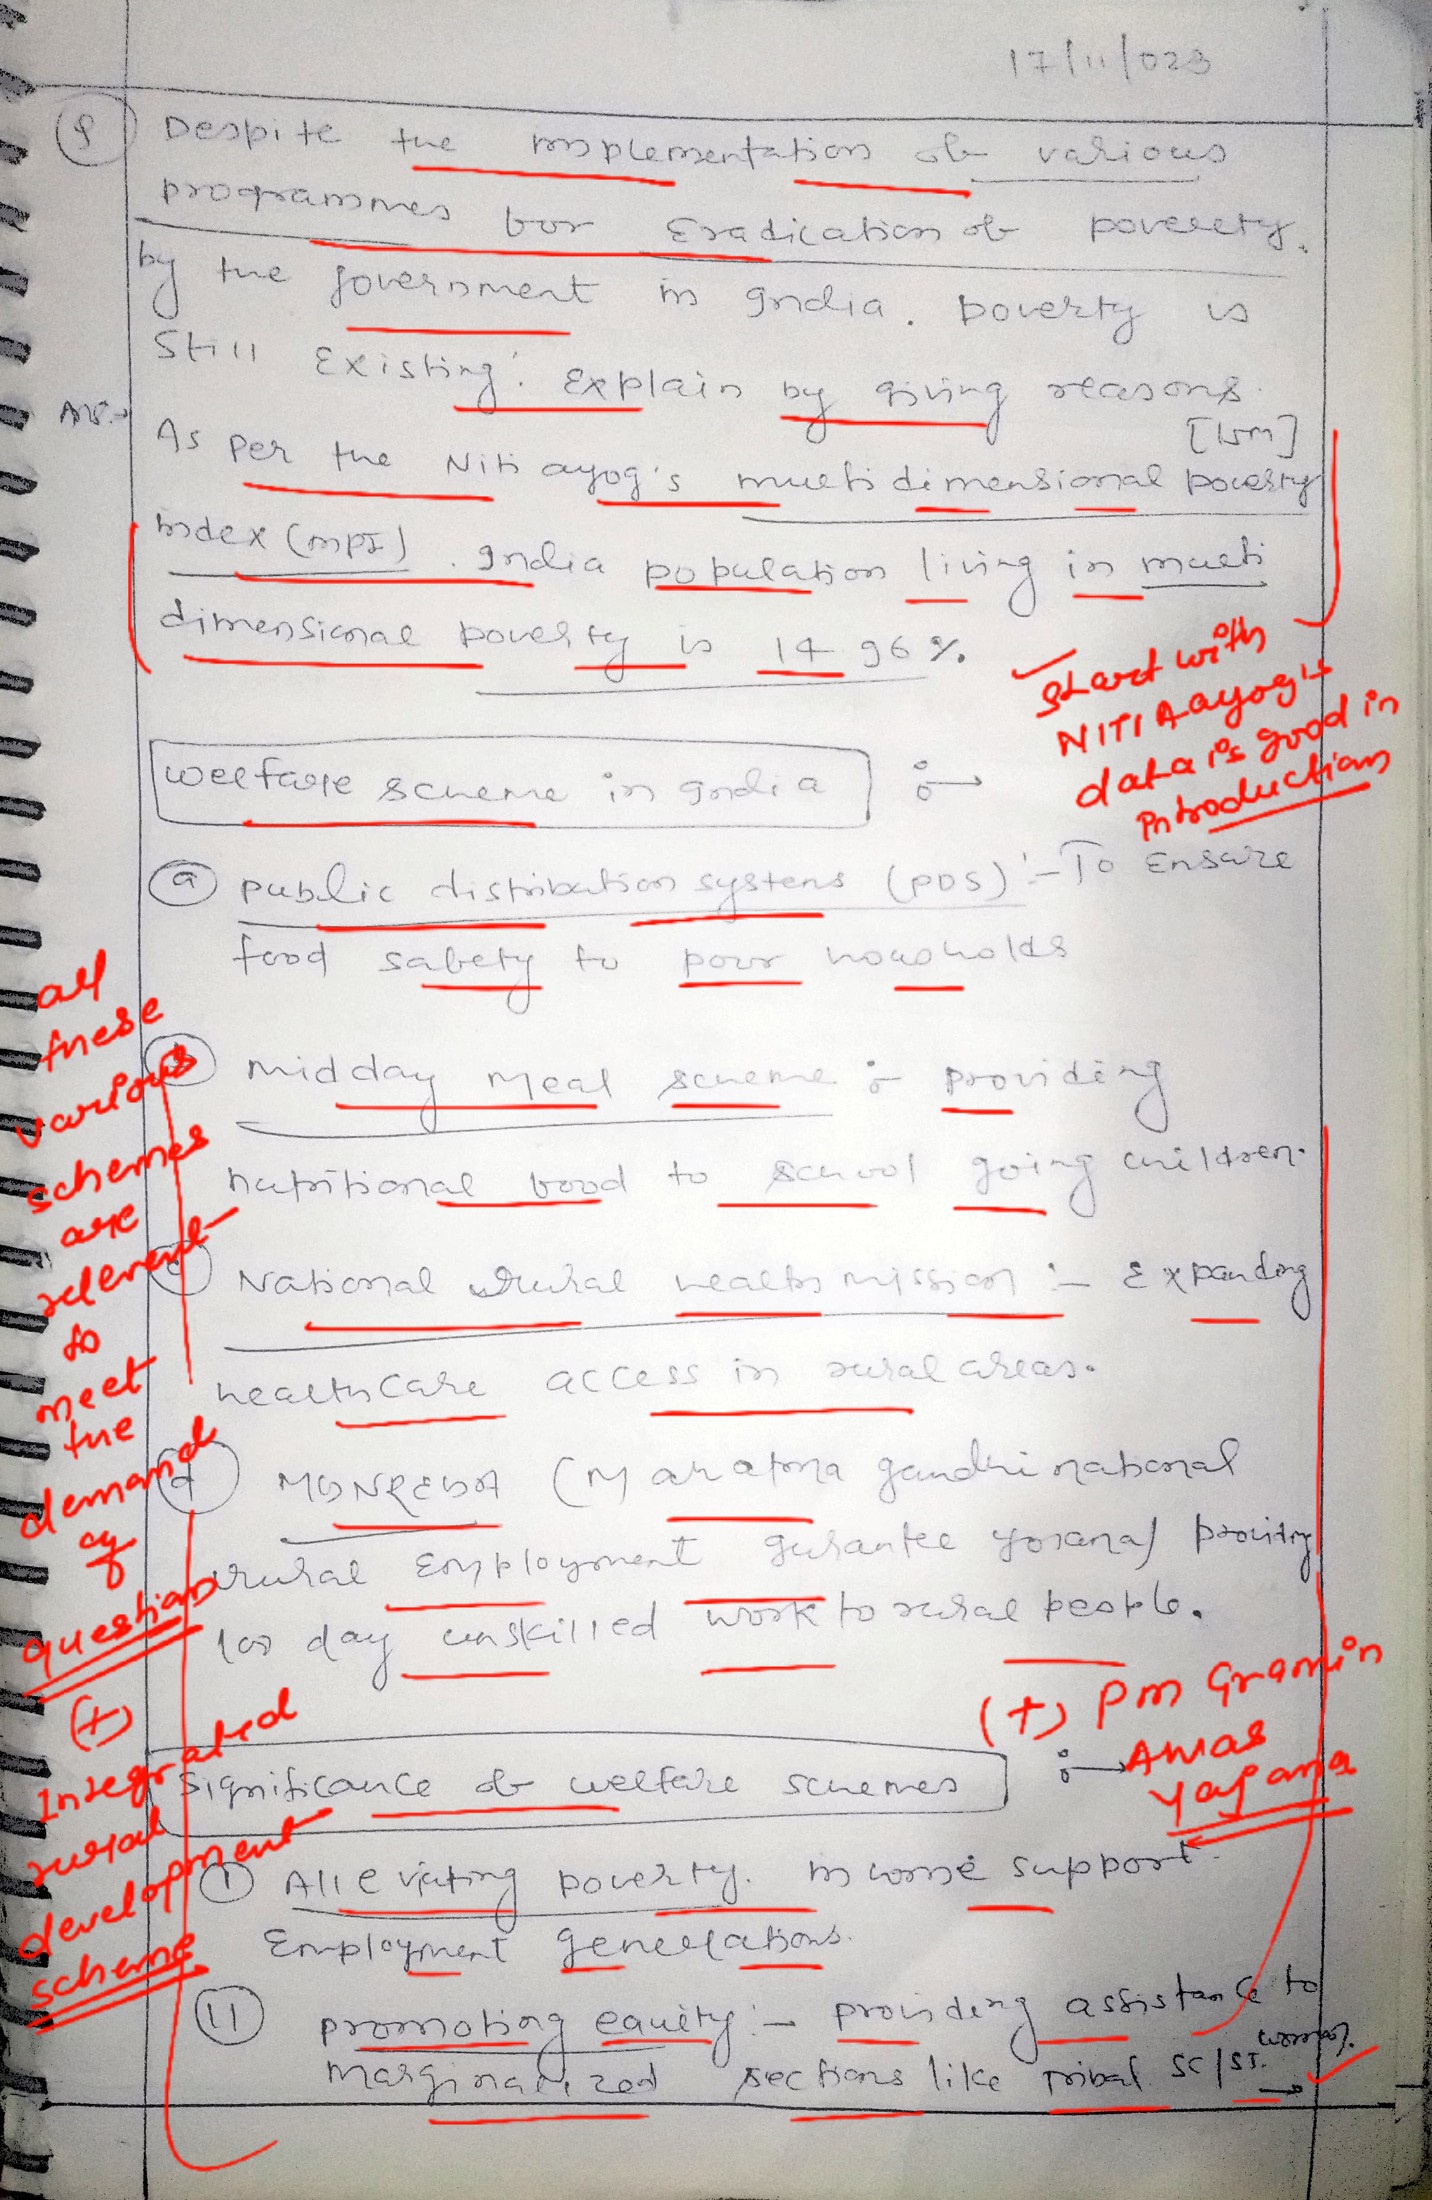 17/11/023
Q Despite the implementation of various
programmes for Eradication of poverety.
by the government in India. poverty is
still Existing. Explain by giving reasons.
[15m]
Ans.→ As per the Niti ayog's multi dimensional poverty
index (MPI). India population living in multi
dimensional poverty is 14.96%.
✓ Start with
NITI Aayog's
data is good in
Introduction
welfare scheme in India
(a) public distribution systems (PDS) :- To Ensure
food safety to poor housholds
(b) midday meal scheme :- providing
nutritional food to school going children.
(c) National rural health mission :- Expanding
healthcare access in rural areas.
(d) MGNREGA (Mahatma gandhi national
rural Employment gurantee yojana) providing
100 day unskilled work to rural people.
all
these
various
schemes
are
relevent
to
meet
the
demand
of
question
(+)
Integrated
rural
development
scheme
(+) PM Gramin
Awas
Yajana
Significance of welfare schemes
(1) Alleviating poverty. income support.
Employment generations.
(11) promoting equity :- providing assistance to
marginalized sections like tribal SC/ST. woman.